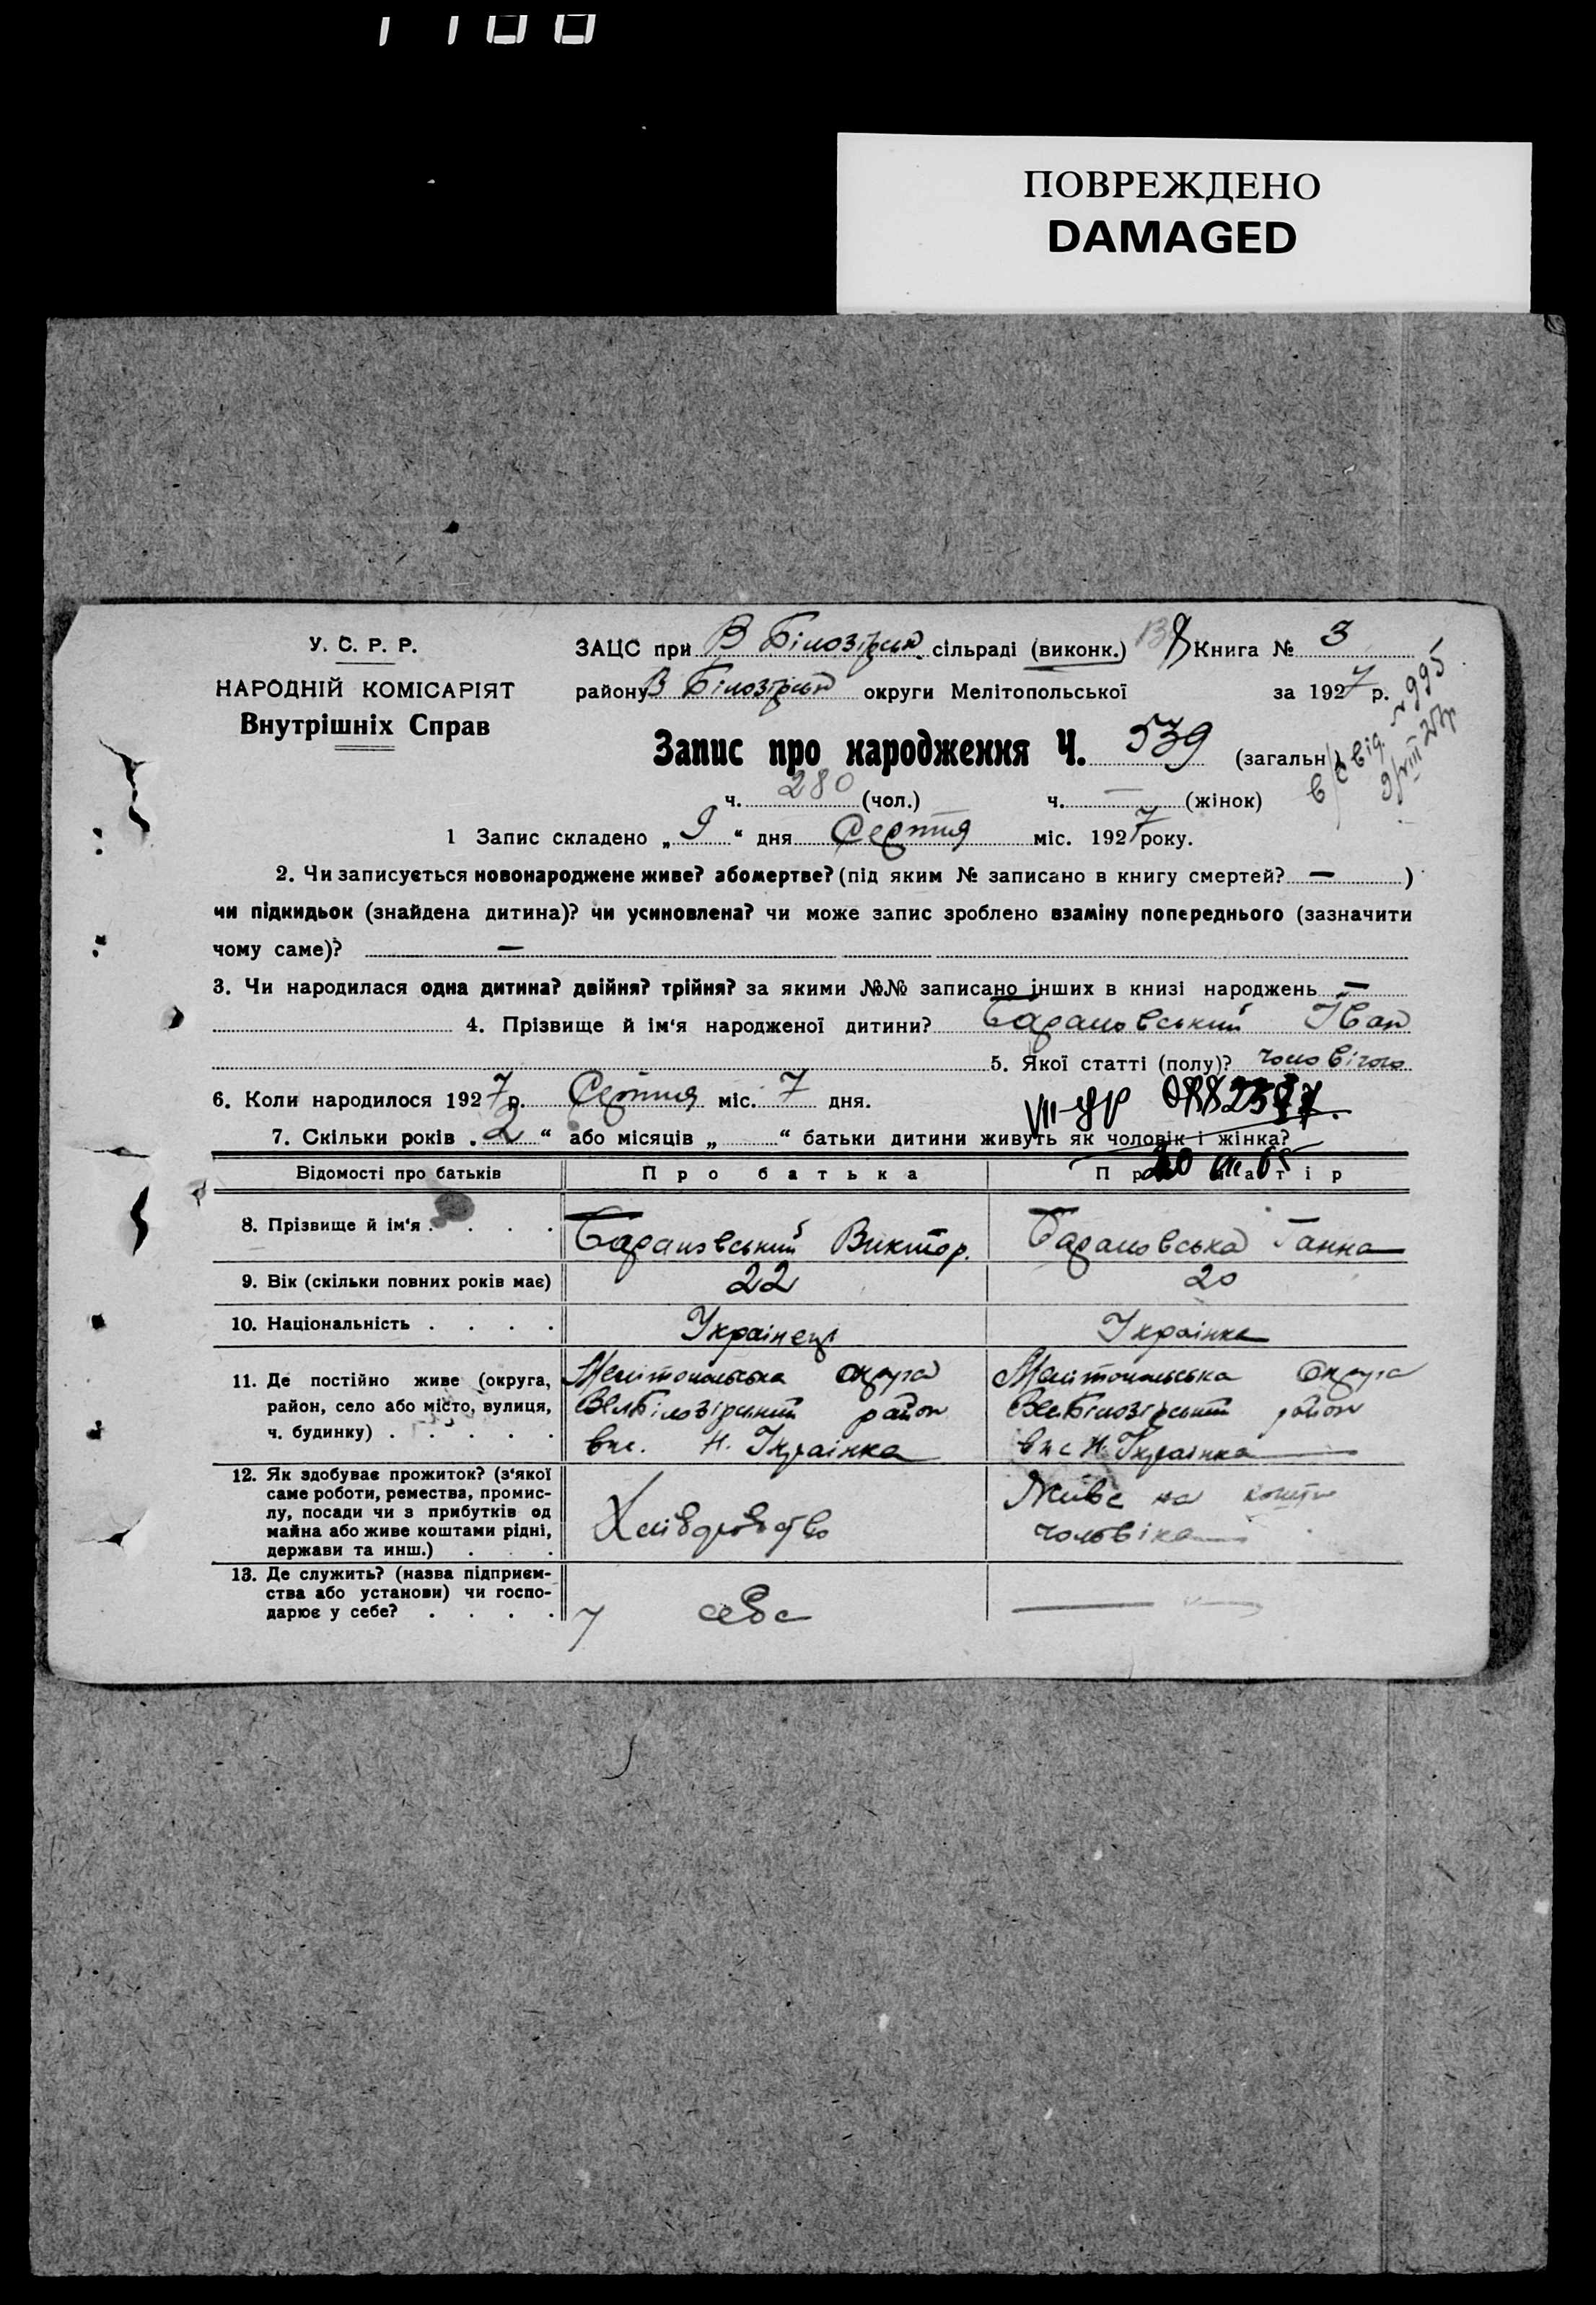 ПОВРЕЖДЕНО
DAMAGED
У. С. Р. Р.
НАРОДНІЙ КОМІСАРІЯТ
Внутрішніх Справ
ЗАЦС при В Білозірськ. сільраді (виконк.) Книга № 3
району В Білозірськ округи Мелітопольської за 1927 р.
Запис про народження Ч. 539 (загальн.)
ч. 280 (чол.) ч. — (жінок)
№ 995
1 Запис складено „ 9 “ дня Серпня міс. 1927 року.
2. Чи записується новонароджене живе? або мертве? (під яким № записано в книгу смертей? — )
чи підкидьок (знайдена дитина)? чи усиновлена? чи може запис зроблено взаміну попереднього (зазначити
чому саме)? —
3. Чи народилася одна дитина? двійня? трійня? за якими №№ записано інших в книзі народжень —
4. Прізвище й ім'я народженої дитини? Барановський Іван
5. Якої статті (полу)? чоловічого
6. Коли народилося 1927 р. Серпня міс. 7 дня.
7. Скільки років „ 2 “ або місяців „ “ батьки дитини живуть як чоловік і жінка?
Відомості про батьків Про батька Про матір
8. Прізвище й ім'я . . . . Барановський Виктор. Барановська Ганна
9. Вік (скільки повних років має) 22 20
10. Національність . . . . Українець Українка
11. Де постійно живе (округа, Мелітопольська округа Мелітопольська округа
район, село або місто, вулиця, Вел Білозірський район Вел Білозірський район
ч. будинку) . . . . . вис. Н. Українка вис Н. Українка
12. Як здобуває прожиток? (з'якої
саме роботи, ремества, промис-
лу, посади чи з прибутків од
майна або живе коштами рідні,
держави та инш.) . . .
Хліборобство
Живе на кошти
чоловіка
13. Де служить? (назва підприєм-
ства або установи) чи госпо-
дарює у себе? . . . .
У себе —